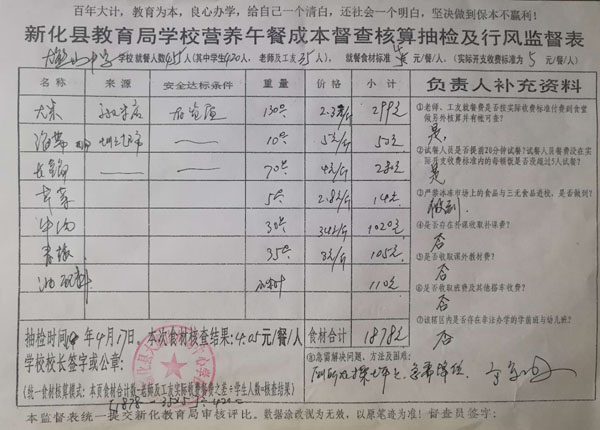 百年大计，教育为本，良心办学，给自己一个清白，还社会一个明白，坚决做到保本不赢利！
新化县教育局学校营养午餐成本督查核算抽检及行风监督表
学校就餐人数455人(其中学生420人，老师及工友35人)，就餐食材标准 元/餐/人，(实际开支收费标准为5元/餐/人)
名称 来源 安全达标条件 重量 价格 小计 负责人补充资料
大米 130斤 2.3元/斤 299元
海带 10斤 5元/斤 50元
70斤 4元/斤 280元
5斤 2.8元/斤 14元
牛肉 30斤 34元/斤 1020元
35斤 3元/斤 105元
油 配料 110元
①老师、工友就餐费是否按实际收费标准付费到食堂做另外核算并有帐可查？
是
②试餐人员是否提前20分钟试餐？试餐人员餐费没在实际开支收费标准内的每顿饭是否没超过5人试餐？
是
③严禁冰冻市场上的食品与三无食品进校，是否做到？
做到
④是否存在补课收取补课费？
否
⑤是否收取课外教材费？
否
⑥是否收取班费及其他搭车收费？
否
⑦该辖区内是否存在非法办学的学前班与幼儿班？
否
抽检时间 年4月17日。本次食材核查结果：4.05元/餐/人 食材合计 1878元
学校校长签字或公章：
⑧急需解决问题，方法及困难：
(统一食材核算模式：本页食材合计数-老师及工友实际收费餐费之差÷学生人数=核查结果)
1878-35×5÷420=
本监督表统一提交新化教育局审核评比。数据涂改视为无效，以原笔迹为准！督查员签字：